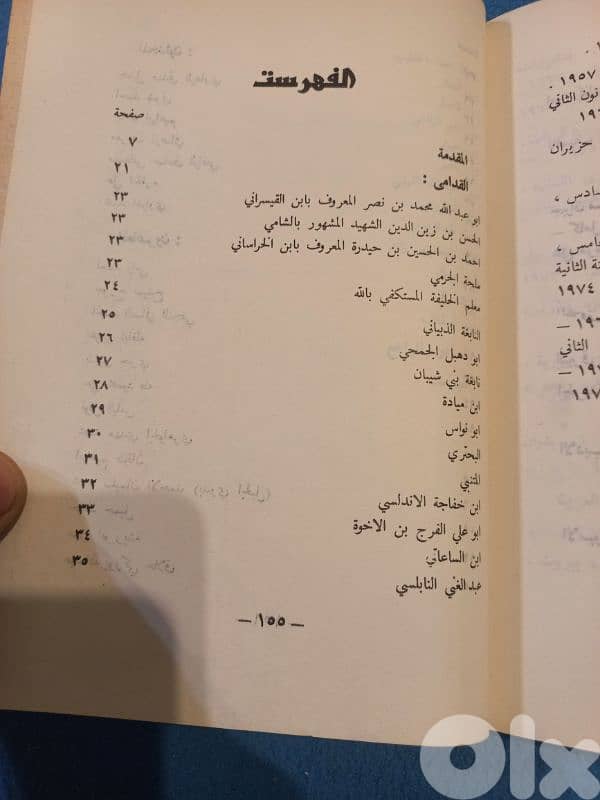 الفهرست
صفحة
المقدمة ٧
القدامى : ٢١
ابو عبد الله محمد بن نصر المعروف بابن القيسراني ٢٣
الحسن بن زين الدين الشهيد المشهور بالشامي ٢٣
احمد بن الحسين بن حيدرة المعروف بابن الخراساني ٢٣
ملحة الجرمي ٢٣
معلم الخليفة المستكفي بالله ٢٤
النابغة الذبياني ٢٥
ابو دهبل الجمحي ٢٦
نابغة بني شيبان ٢٧
ابن ميادة ٢٨
ابو نواس ٢٩
البحتري ٣٠
المتنبي ٣١
ابن خفاجة الاندلسي ٣٢
ابو علي الفرج بن الاخوة ٣٣
ابن الساعاتي ٣٤
عبد الغني النابلسي ٣٥
— ١٥٥ —
١٩٥٧ .
نون الثاني
حزيران
سادس ،
امس ،
نة الثانية
١٩٧٤
الثاني
OLX